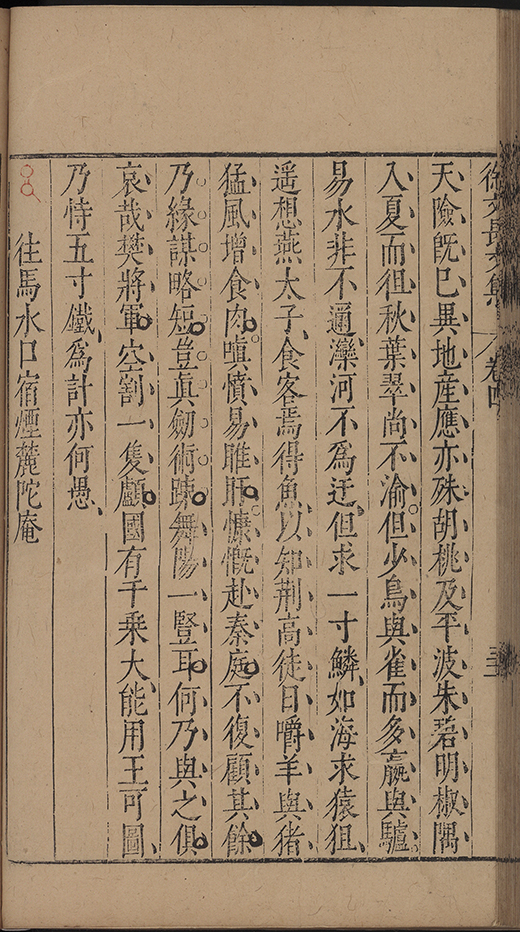 徐文長文集 卷四 三
天險既已異地産應亦殊胡桃及平波朱碧明椒隅
入夏而徂秋葉翠尚不渝但少鳥與雀而多蠃與驢
易水非不邇灤河不爲迂但求一寸鱗如海求猿狙
遥想燕太子食客焉得魚以知荆高徒日嚼羊與猪
猛風增食肉嗔憤易睢盱慷慨赴秦庭不復顧其餘
乃緣謀略短豈真劒術踈舞陽一豎耳何乃與之俱
哀哉樊將軍空割一隻顱國有千乗大能用王可圖
乃恃五寸鐵爲計亦何愚
往馬水口宿煙蘿陀庵